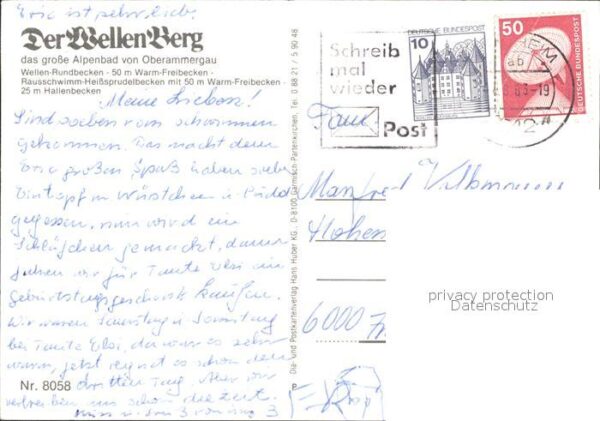 Eric ist sehr lieb.
Der Wellen Berg
das große Alpenbad von Oberammergau
Wellen-Rundbecken - 50 m Warm-Freibecken -
Rausschwimm-Heißsprudelbecken mit 50 m Warm-Freibecken -
25 m Hallenbecken
Meine Lieben!
Sind soeben vom schwimmen
gekommen. Das macht dem
Eric großen Spaß haben
Eintopf m Würstchen u.
gegessen, nun wird ein
Schläfchen gemacht, dann
wir für Tante Elsi ein
Geburtstagsgeschenk kaufen.
Wir waren Samstag u Sonntag
bei Tante Elsi, da war es sehr
warm, jetzt regnet es schon den
dritten Tag. Aber wir
uns schon die Zeit.
von uns 3
Nr. 8058
Dia- und Postkartenverlag Hans Huber KG., D-8100 Garmisch-Partenkirchen, Tel. 0 88 21 / 5 90 48
Schreib
mal
wieder
Post
10
DEUTSCHE BUNDESPOST
50
DEUTSCHE BUNDESPOST
Fam
Manfred
Hohen
6000
privacy protection
Datenschutz